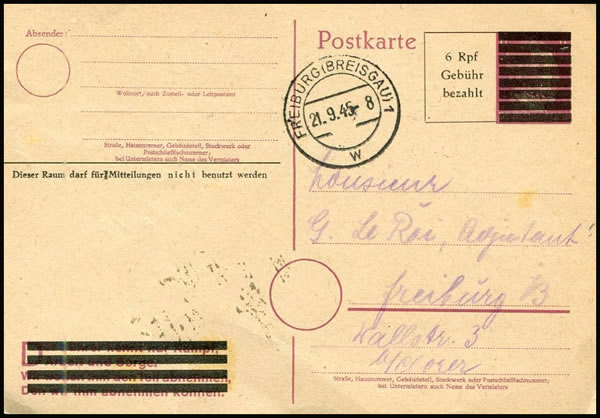 Absender:
Wohnort, auch Zustell- oder Leitpostamt
Straße, Hausnummer, Gebäudeteil, Stockwerk oder
Postschließfachnummer,
bei Untermietern auch Name des Vermieters
Dieser Raum darf für Mitteilungen nicht benutzt werden
Postkarte
6 Rpf
Gebühr
bezahlt
FREIBURG (BREISGAU) 1
21.9.45-8
w
Monsieur
G. Le Roi, Adjutant
Freiburg B
Wallstr. 3
Straße, Hausnummer, Gebäudeteil, Stockwerk oder Postschließfachnummer;
bei Untermietern auch Name des Vermieters
nur Kampf,
Arbeit und Sorge.
ihm den Teil abnehmen,
Den wir ihm abnehmen können.